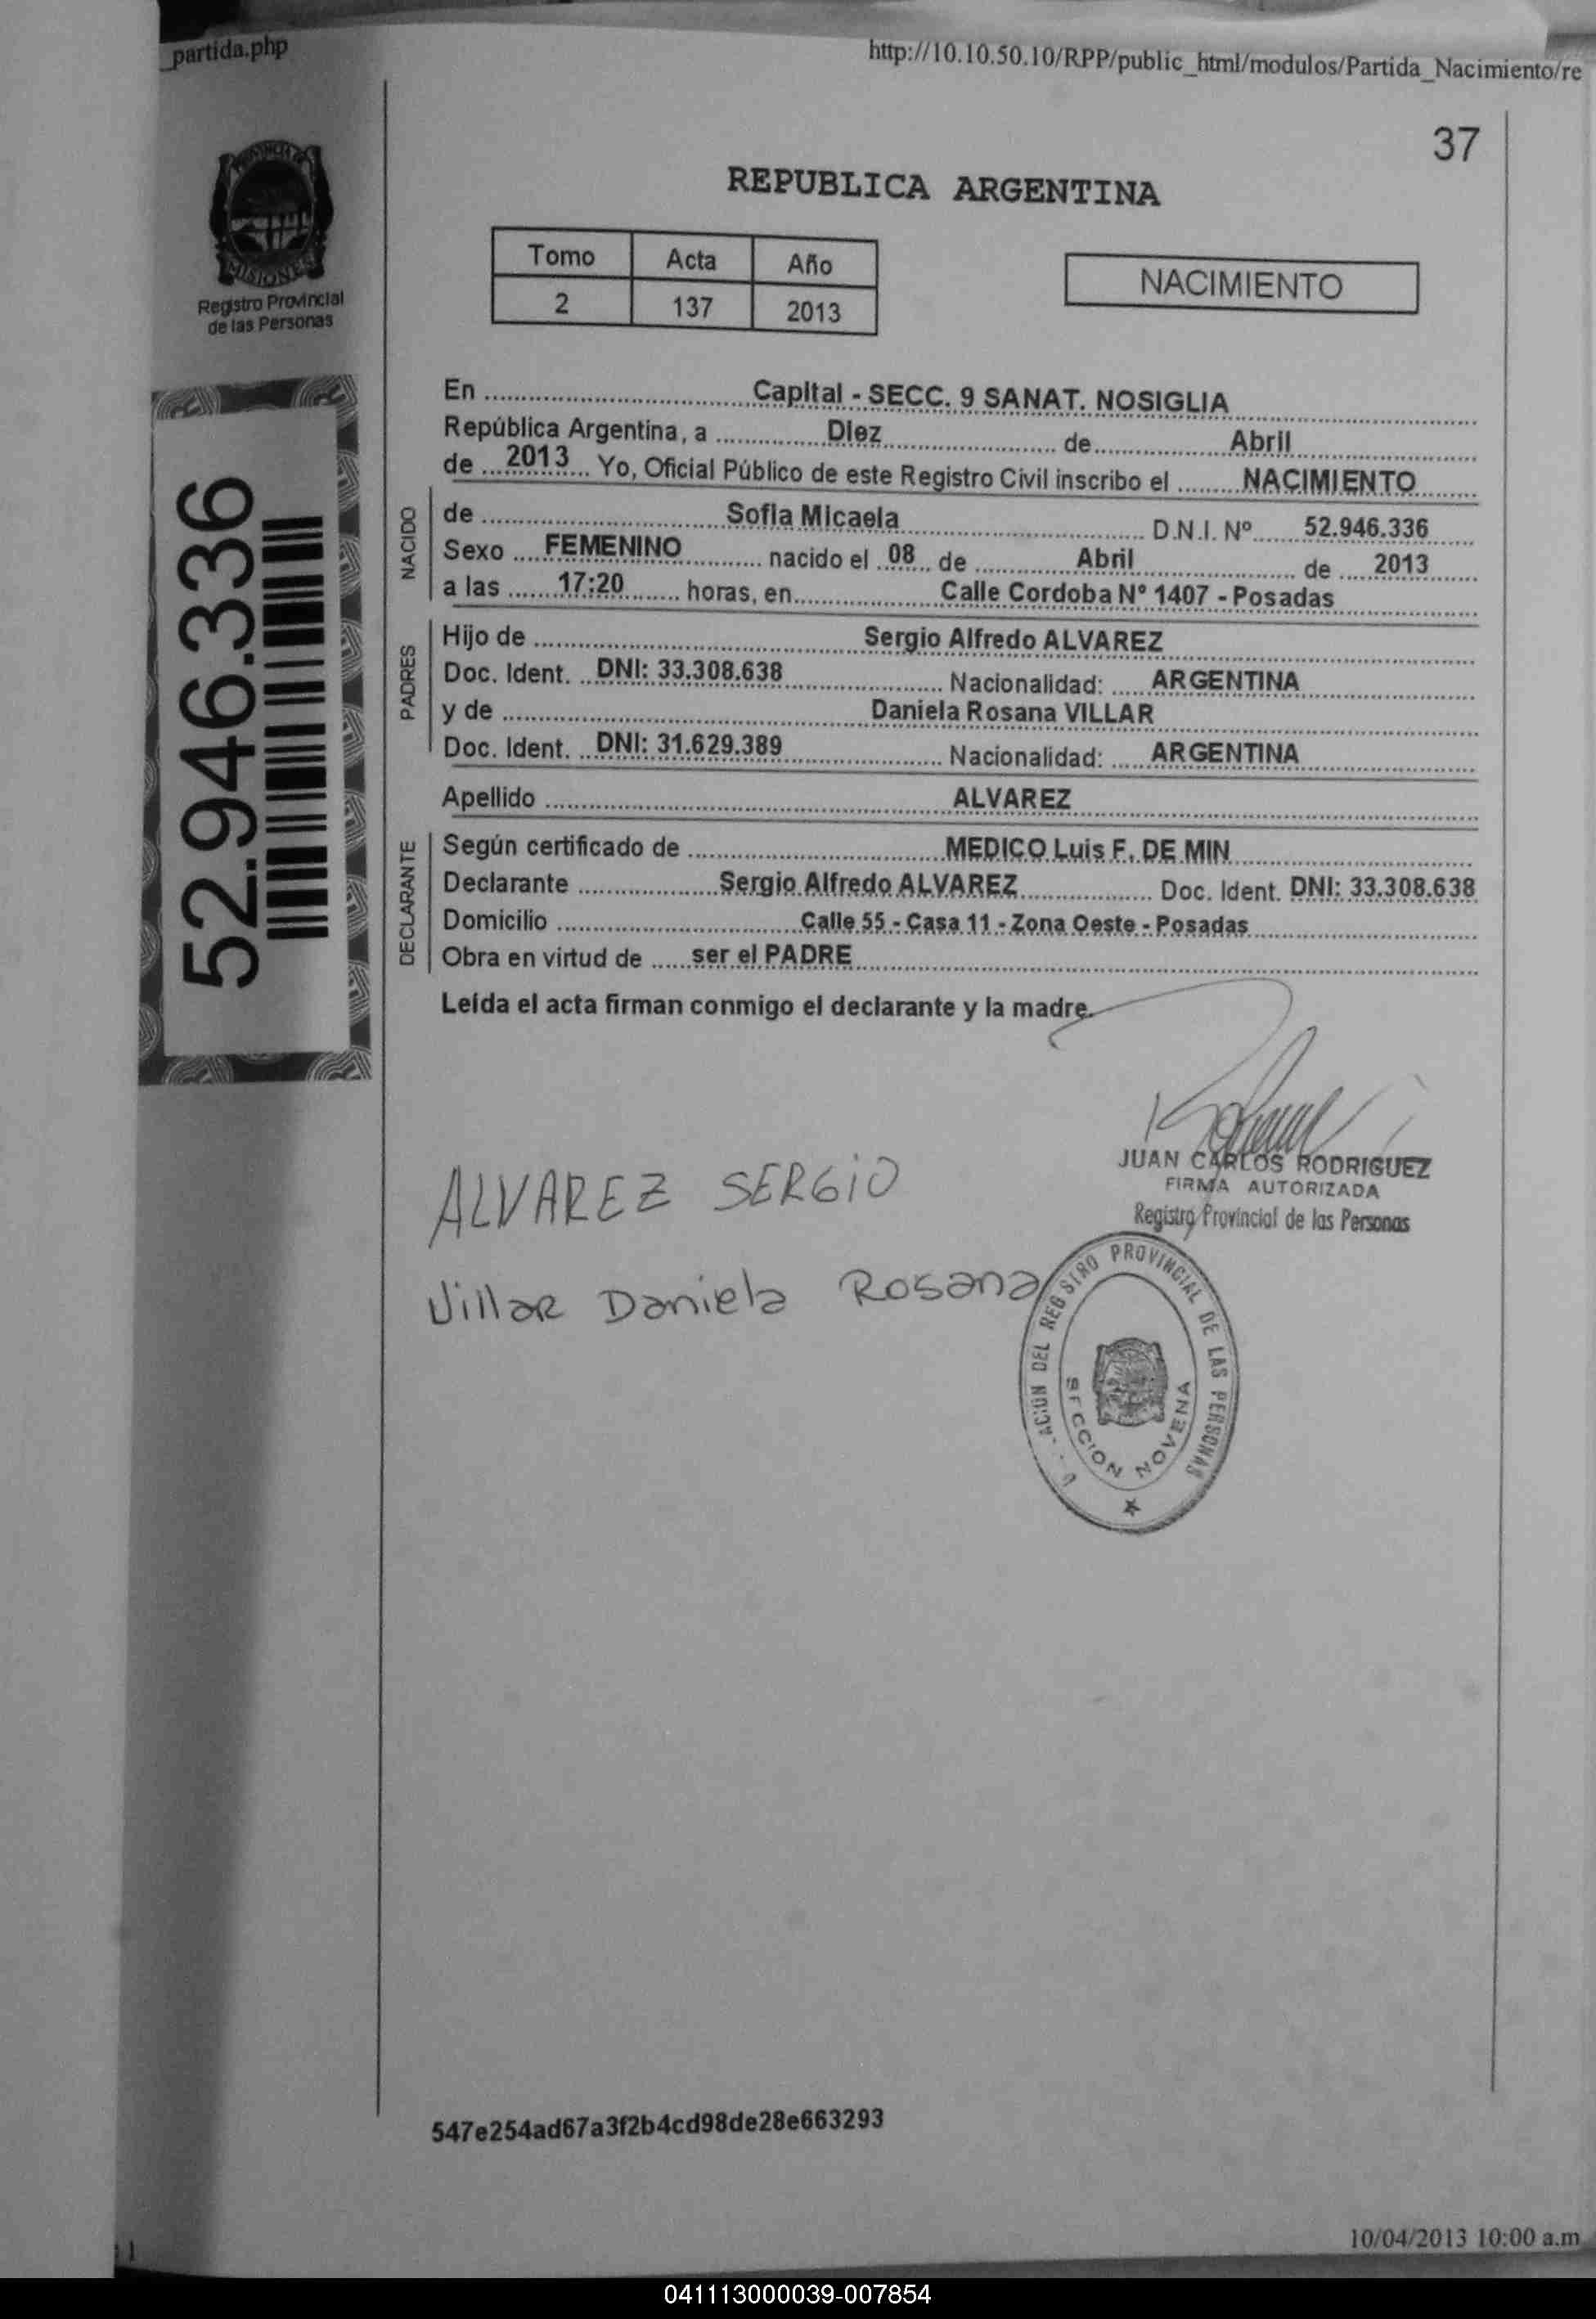 _partida.php
http://10.10.50.10/RPP/public_html/modulos/Partida_Nacimiento/re
37
PROVINCIA DE
MISIONES
Registro Provincial
de las Personas
REPUBLICA ARGENTINA
Tomo Acta Año
2 137 2013
NACIMIENTO
52.946.336
En Capital - SECC. 9 SANAT. NOSIGLIA
República Argentina, a Diez de Abril
de 2013 Yo, Oficial Público de este Registro Civil inscribo el NACIMIENTO
NACIDO
de Sofia Micaela D.N.I. Nº 52.946.336
Sexo FEMENINO nacido el 08 de Abril de 2013
a las 17:20 horas, en Calle Cordoba Nº 1407 - Posadas
PADRES
Hijo de Sergio Alfredo ALVAREZ
Doc. Ident. DNI: 33.308.638 Nacionalidad: ARGENTINA
y de Daniela Rosana VILLAR
Doc. Ident. DNI: 31.629.389 Nacionalidad: ARGENTINA
Apellido ALVAREZ
DECLARANTE
Según certificado de MEDICO Luis F. DE MIN
Declarante Sergio Alfredo ALVAREZ Doc. Ident. DNI: 33.308.638
Domicilio Calle 55 - Casa 11 - Zona Oeste - Posadas
Obra en virtud de ser el PADRE
Leída el acta firman conmigo el declarante y la madre.
JUAN CARLOS RODRIGUEZ
FIRMA AUTORIZADA
Registro Provincial de las Personas
ALVAREZ SERGIO
Villar Daniela Rosana
DEL REGISTRO PROVINCIAL DE LAS PERSONAS
SECCION NOVENA
547e254ad67a3f2b4cd98de28e663293
1
10/04/2013 10:00 a.m
041113000039-007854